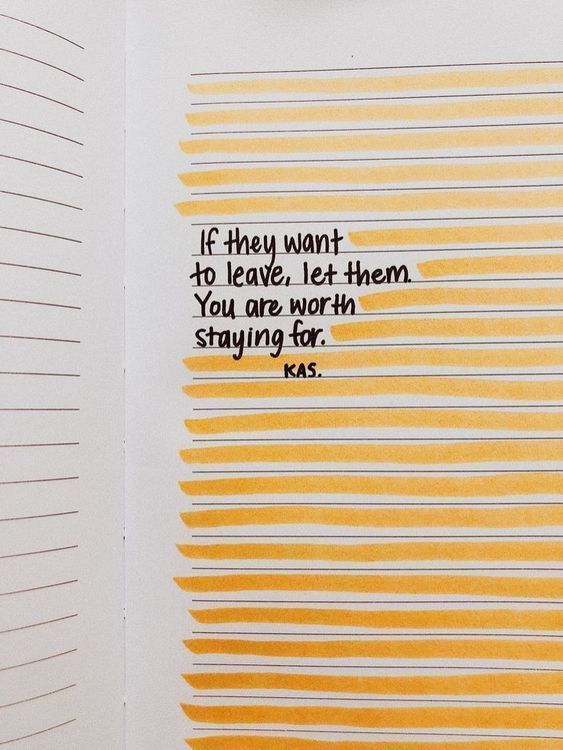 If they want
to leave, let them.
You are worth
staying for.
KAS.